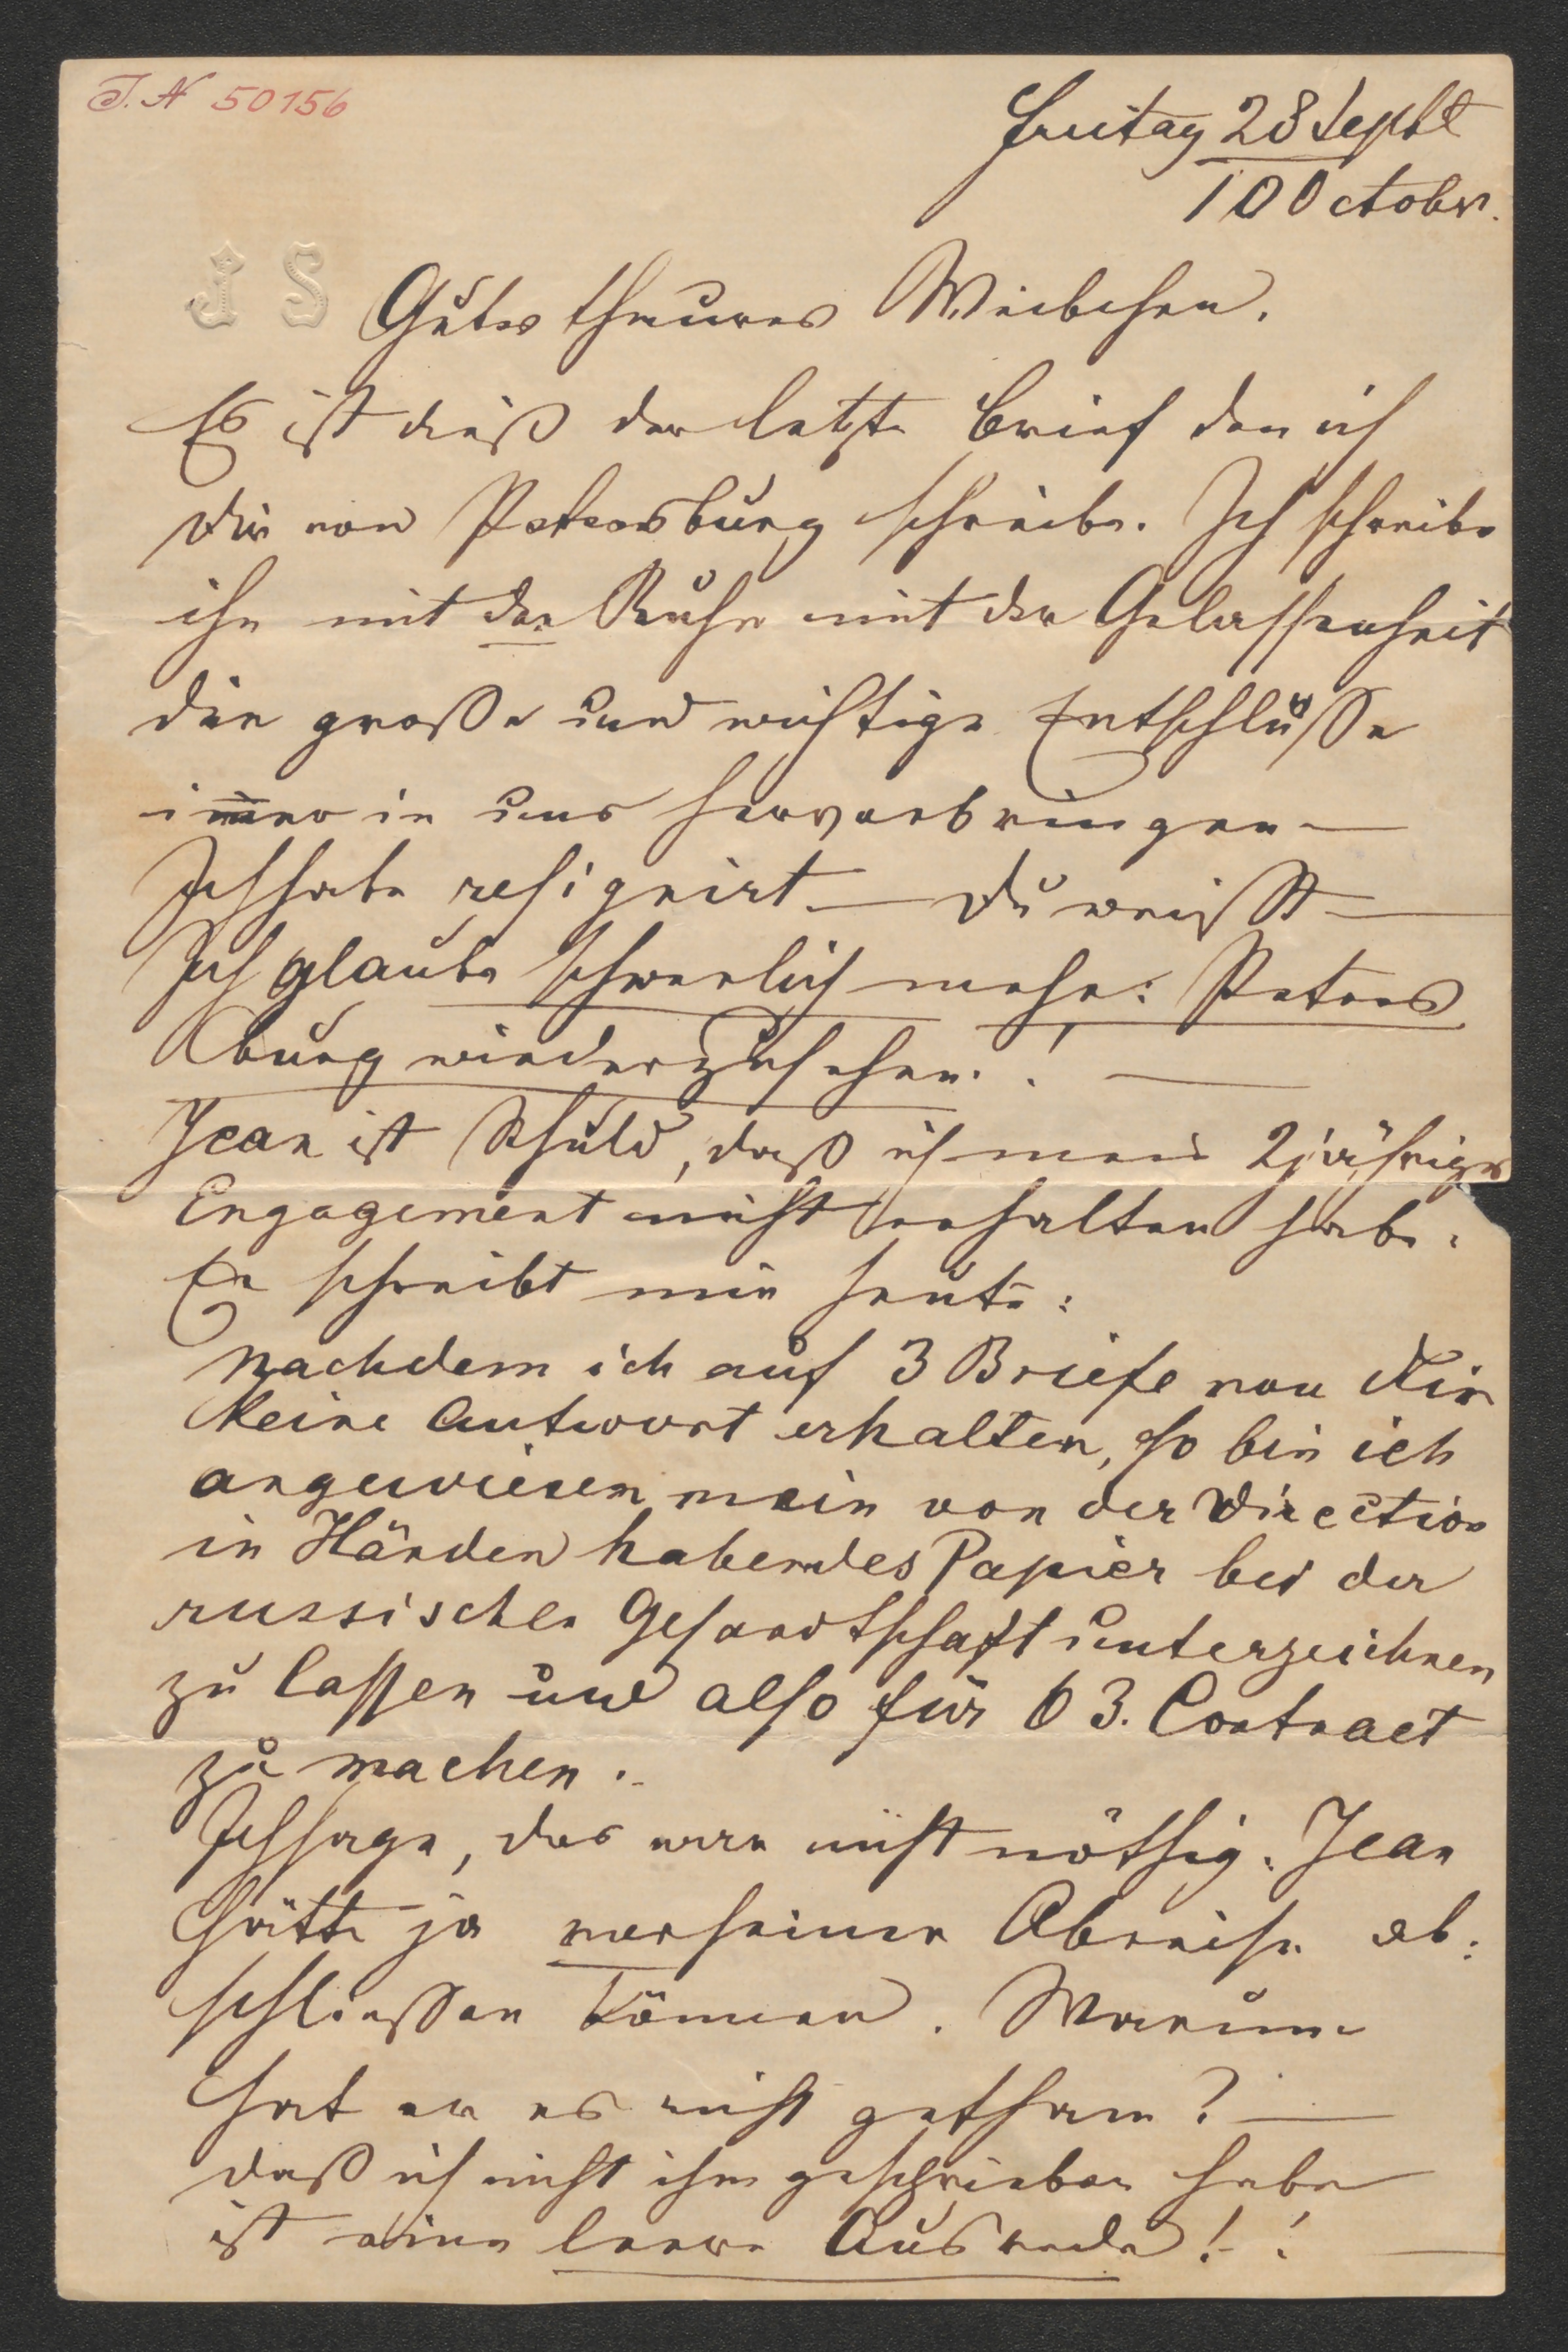 I. N 50156
Freitag 28 Septbe
10 October.
J S
Gutes theures Weibchen.
Es ist dieß der letzte Brief den ich
Dir von Petersburg schreibe. Ich schreibe
ihn mit der Ruhe mit der Gelassenheit
die große und wichtige Entschlüße
immer in uns hervorbringen —
Ich habe resignirt — Du weißt —
Ich glaube schwerlich mehr: Peters
burg wiederzusehen.! —
Jean ist Schuld, daß ich mein 2jähriges
Engagement nicht erhalten habe.
Er schreibt mir heute:
Nachdem ich auf 3 Briefe von Dir
keine Antwort erhalten, so bin ich
angewiesen mein von der Direction
in Händen habendes Papier bei der
russischen Gesandtschaft unterzeichnen
zu lassen und also für 63. Contract
zu machen.
Ich sage, das war nicht nöthig. Jean
hätte ja vor seiner Abreise ab:
schließen können. Warum
hat er es nicht gethan? —
daß ich nicht ihm geschrieben habe
ist eine leere Ausrede!! —